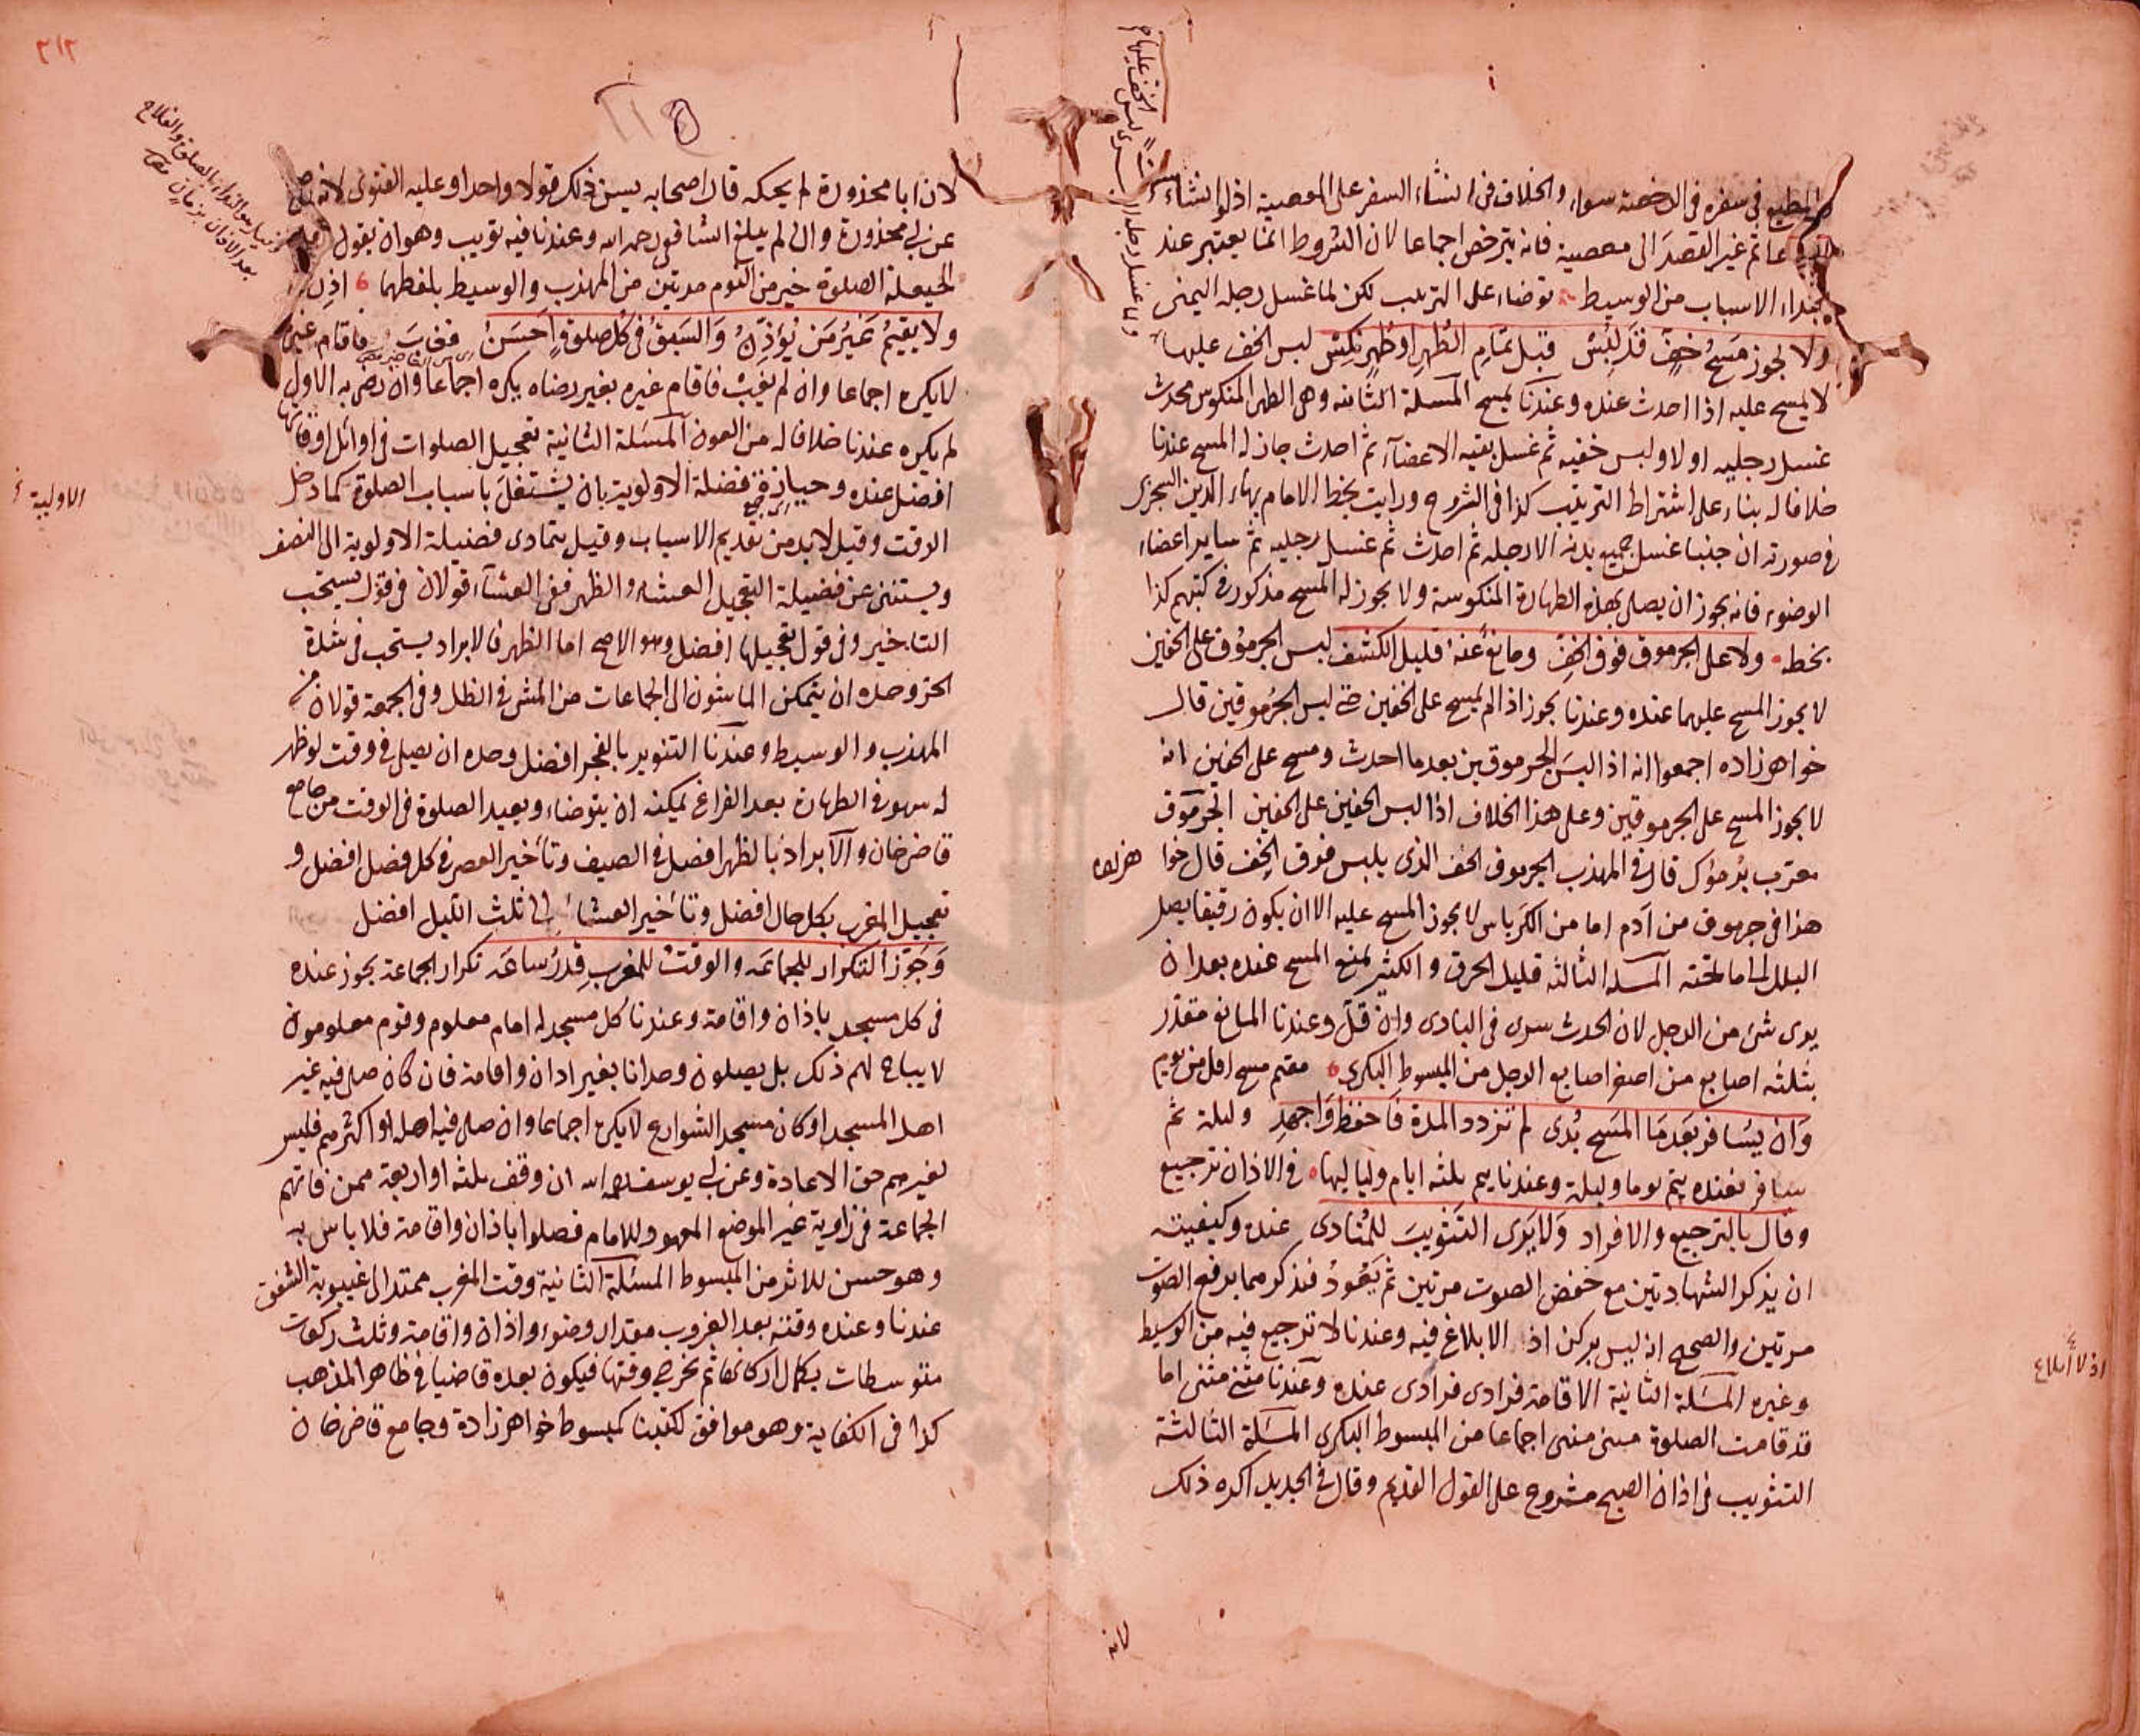 المطيع في سفره في الرخصة سواء والخلاف في انشاء السفر على المعصية اذ لو انشاء
ثم غير القصد الى معصية فانه يترخص اجماعا لان الشروط انما يعتبر عند
ابتداء الاسباب من الوسيط توضاء على الترتيب لكن لما غسل رجله اليمنى
ولا يجوز مسح خف قد لبس قبل تمام الطهر او طهر نكس لبس الخف عليها
لا يمسح عليه اذا احدث عنده وعندنا يمسح المسلة الثانيه وهى الطهر المنكوس محدث
غسل رجليه اولا ولبس خفيه ثم غسل بقيه الاعضاء ثم احدث جاز له المسح عندنا
خلافا له بناء على اشتراط الترتيب كذا في الشروح ورايت بخط الامام بهاء الدين
في صورته ان جنبا غسل جميع بدنه الا رجله ثم احدث ثم غسل رجليه ثم ساير اعضاء
الوضوء فانه يجوز ان يصلى بهذه الطهارة المنكوسة ولا يجوز له المسح مذكور في كتبهم كذا
بخطه ولا على الجرموق فوق الخف ومانع عنه قليل الكشف لبس الجرموق على الخفين
لا يجوز المسح عليهما عنده وعندنا يجوز اذا لم يمسح على الخفين حتى لبس الجرموقين قال
خواهرزاده اجمعوا انه اذا لبس الجرموقين بعدما احدث ومسح على الخفين انه
لا يجوز المسح على الجرموقين وعلى هذا الخلاف اذا لبس الخفين على الخفين الجرموق
معرب برموك قال في المهذب الجرموق الخف الذى يلبس فوق الخف قال خوا هرزاده
هذا في جرموق من آدم اما من الكرباس لا يجوز المسح عليه الا ان يكون رقيقا يصل
البلل الى ما تحته المسلة الثالثه قليل الخرق والكثير يمنع المسح عنده بعد ان
يرى شئ من الرجل لان الحدث سرى في البادى وان قل وعندنا المانع مقدر
بثلثه اصابع من اصغر اصابع الرجل من المبسوط البكرى مقيم مسح اقل من يوم
وان يسافر بعدما المسح بدى لم تزدد المدة فاحفظ واجهد وليلة ثم
سافر فعنده يتم يوما وليلة وعندنا يتم ثلثه ايام ولياليها في الاذان ترجيع
وقال بالترجيع والافراد ولا يرى التثويب للمنادى عنده وكيفيته
ان يذكر الشهادتين مع خفض الصوت مرتين ثم يعود فيذكرهما برفع الصوت
مرتين والصحيح انه ليس بركن اذ الابلاغ فيه وعندنا لا ترجيع فيه من الوسيط
اذ لا ابلاغ
وغيره المسلة الثانية الاقامة فرادى فرادى عنده وعندنا مثنى مثنى اما
قد قامت الصلوة مثنى مثنى اجماعا من المبسوط البكرى المسلة الثالثة
التثويب في اذان الصبح مشروع على القول القديم وقال في الجديد اكره ذلك
لانه
٣١٢
لان ابا محذورة لم يحكه قال اصحابه يسن ذلك قولا واحدا وعليه الفتوى لانه صح
عن ابى محذورة وان لم يبلغ الشافعى رحمه الله وعندنا فيه تثويب وهو ان يقول بعد
الحيعلة الصلوة خير من النوم مرتين من المهذب والوسيط بلفظهما اذن
ولا يقيم غير من يؤذن والسبق في كل صلوة احسن فغاب فاقام غيره
لا يكره اجماعا وان لم يغب فاقام غيره بغير رضاه يكره اجماعا وان رضى به الاول
لم يكره عندنا خلافا له من العون المسئلة الثانية تعجيل الصلوات في اوائل اوقاتها
افضل عنده وحيازة فضلة الاولوية بان يشتغل باسباب الصلوة كما دخل
الاولية
الوقت وقيل لا بد من تقديم الاسباب وقيل يتمادى فضيلة الاولوية الى النصف
ويستثنى عن فضيلة التعجيل العشاء والظهر ففى العشاء قولان في قول يستحب
التاخير وفى قول تعجيلها افضل وهو الاصح اما الظهر فالابراد يستحب في شدة
الحر وحده ان يتمكن الماشون الى الجماعات من المشى في الظل وفى الجمعة قولان من
المهذب والوسيط وعندنا التنوير بالفجر افضل وحده ان يصلى في وقت لو ظهر
له سهو في الطهارة بعد الفراغ يمكنه ان يتوضاء ويعيد الصلوة في الوقت من جامع
قاضى خان والابراد بالظهر افضل في الصيف وتأخير العصر في كل فصل افضل و
تعجيل المغرب بكل حال افضل وتأخير العشاء الى ثلث الليل افضل
وجوز التكرار للجماعه والوقت للمغرب قدر ساعه تكرار الجماعة يجوز عنده
في كل مسجد باذان واقامة وعندنا كل مسجد له امام معلوم وقوم معلومون
لا يباح لهم ذلك بل يصلون وحدانا بغير اذان واقامة فان كان صلى فيه غير
اهل المسجد او كان مسجد الشوارع لا يكره اجماعا وان صلى فيه اهله او اكثرهم فليس
لغيرهم حق الاعادة وعن ابى يوسف رحمه الله ان وقف ثلثه او اربعة ممن فاتهم
الجماعة في زاوية غير الموضع المعهود للامام فصلوا باذان واقامة فلا باس به
وهو حسن للاثر من المبسوط المسئلة الثانية وقت المغرب ممتد الى غيبوبة الشفق
عندنا وعنده وقته بعد الغروب مقدار وضوء واذان واقامة وثلث ركعات
متوسطات بكمال اركانها ثم تخرج وقتها فيكون بعده قاضيا في ظاهر المذهب
كذا في الكفاية وهو موافق لكتبنا كمبسوط خواهرزادة وجامع قاضى خان